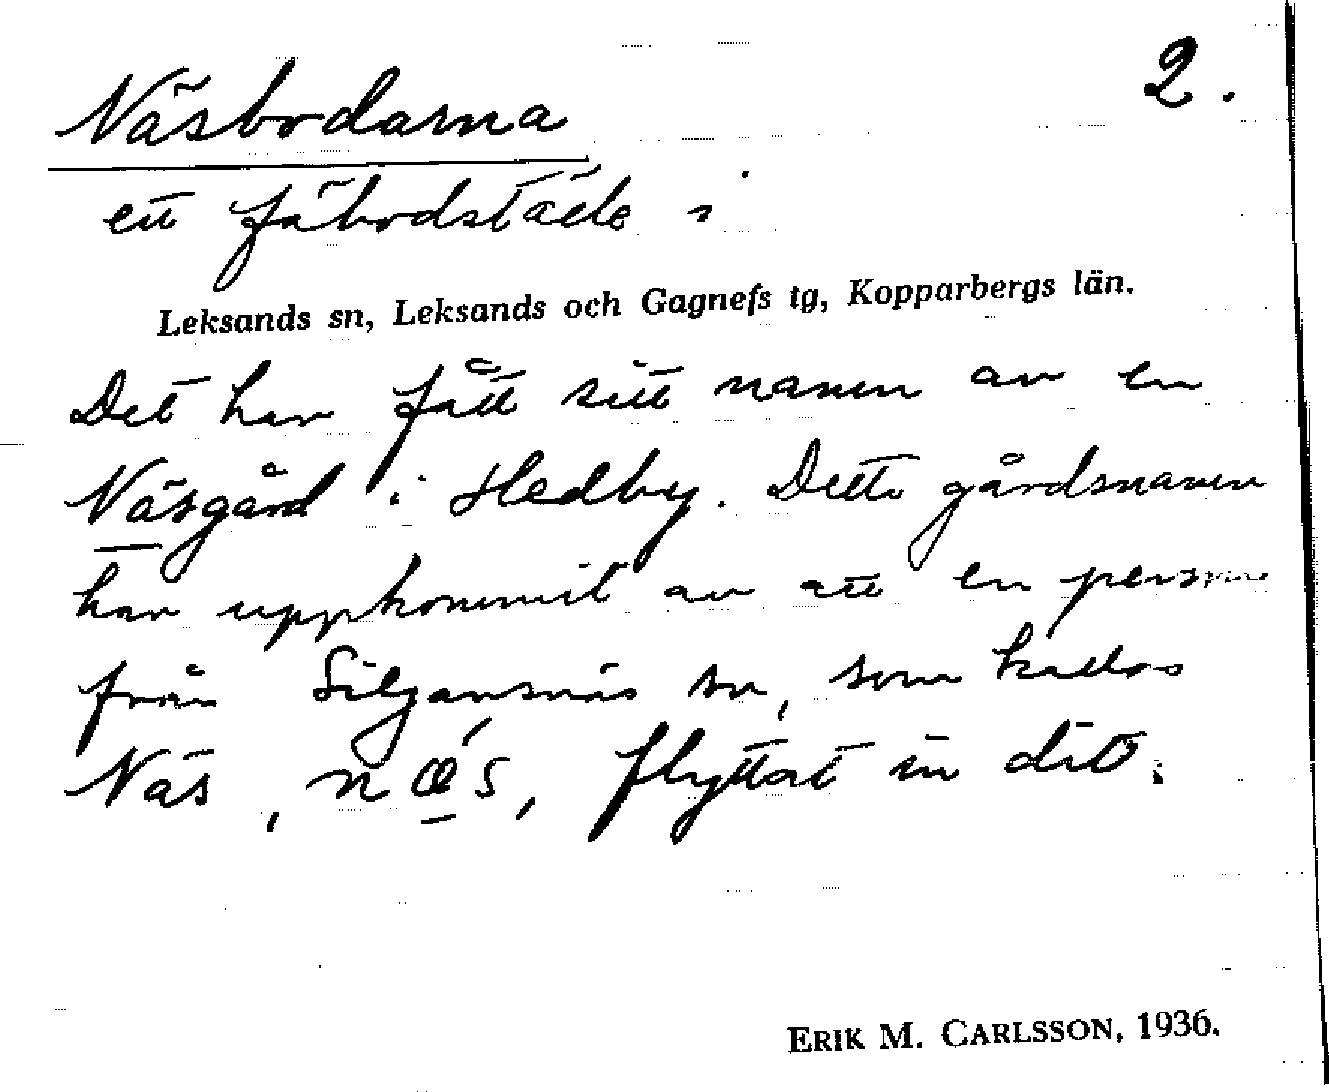 2.
Näsbodarna
ett fäbodställe i
Leksands sn, Leksands och Gagnefs tg, Kopparbergs län.
Det har fått sitt namn av en
Näsgård i Hedby. Detta gårdsnamn
har uppkommit av att en person
från Siljansnäs sn, som kallas
Näs, næ´s, flyttat in dit.
ERIK M. CARLSSON, 1936.